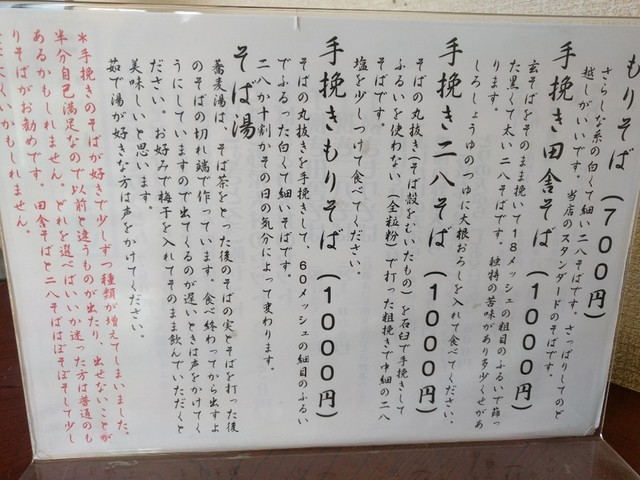 もりそば（７００円）
さらしな系の白くて細い二八そばです。さっぱりしてのど
越しがいいです。当店のスタンダードのそばです。
手挽き田舎そば（１０００円）
玄そばをそのまま挽いて１８メッシュの粗目のふるいで篩っ
た黒くて太い二八そばです。独特の苦味があり多少くせがあ
ります。
しろしょうゆのつゆに大根おろしを入れて食べてください。
手挽き二八そば（１０００円）
そばの丸抜き（そば殻をむいたもの）を石臼で手挽きして
ふるいを使わない（全粒粉）で打った粗挽きで中細の二八
そばです。
塩を少しつけて食べてください。
手挽きもりそば（１０００円）
そばの丸抜きを手挽きして、６０メッシュの細目のふるい
でふるった白くて細いそばです。
二八か十割かその日の気分によって変わります。
そば湯
蕎麦湯は、そば茶をとった後のそばの実とそばを打った後
のそばの切れ端で作っています。食べ終わってから出すよ
うにしていますので出てくるのが遅いときは声をかけてく
ださい。お好みで梅干を入れてそのまま飲んでいただくと
美味しいと思います。
茹で湯が好きな方は声をかけてください。
＊手挽きのそばが好きで少しずつ種類が増えてしまいました。
半分自己満足なので以前と違うものが出たり、出せないことが
あるかもしれません。どれを選べばいいか迷った方は普通のも
りそばがお勧めです。田舎そばと二八そばはぼそぼそして少し
かもしれません。